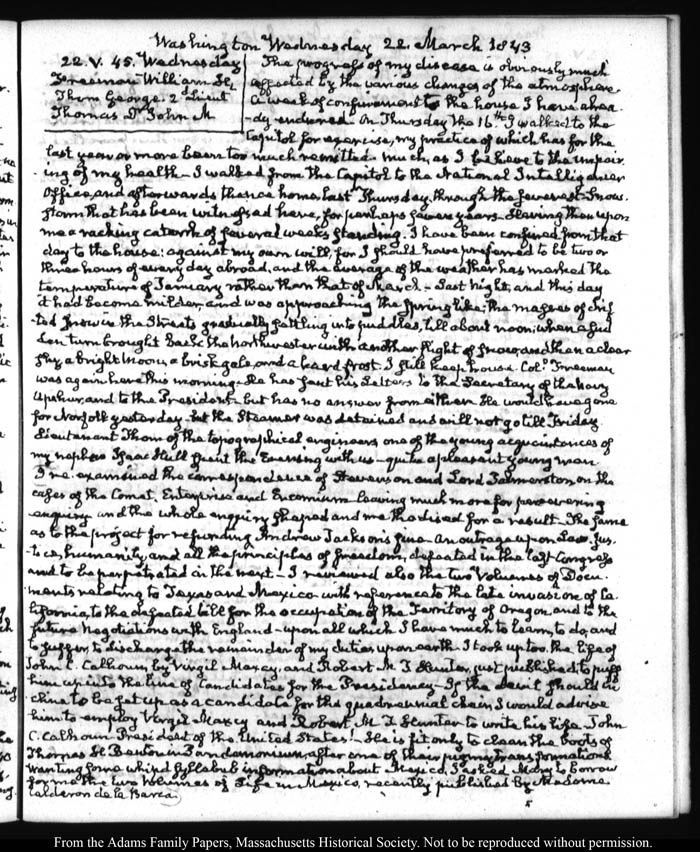 Washington Wednesday 22. March 1843
22. V. 45. Wednesday
Freeman William H.
Thom George. 2 Lieut
Thomas Dr John M
The progress of my disease is obviously much
affected by the various changes of the atmosphere
A week of confinement to the house I have alrea
-dy endured. On Thursday the 16th I walked to the
Capitol for exercise, my practice of which has for the
last year or more been too much remitted much, as I believe to the impair
ing of my health – I walked from the Capitol to the National Intelligencer
Office, and afterwards thence home last Thursday, through the severest Snow
storm that has been witnessed here, for perhaps years – Having then upon
me a racking catarrh of several weeks standing. I have been confined from that
day to the house: against my own will, for I should have preferred to be two or
three hours of every day abroad, and the average of the weather has marked the
temperature of January rather than that of March – Last Night, and this day
it had become milder, and was approaching the Spring like; the masses of drif
ted Snow in the Streets gradually settling into puddles, till about noon; when a sud
den turn brought back the northwester with another flight of snow, and then a clear
sky, a bright Moon, a brisk gale, and a hard frost. I still keep house. Colo. Freeman
was again here this morning. He has sent his Letters to the Secretary of the Navy
Upshur, and to the President – but has no answer from either. He would have gone
for Norfolk yesterday – but the Steamer was detained and will not go till Friday
Lieutenant Thom of the topographical engineers one of the young acquaintances of
my nephew Isaac Hull spent the Evening with us – quite a pleasant young man
I re-examined the correspondence of Stevenson and Lord Palmerston on the
cases of the Comet, Enterprise and Encomium leaving much more for persevering
enquiry and the whole enquiry shaped and methodised for a result – The same
as to the project for refunding Andrew Jackson's fine – An outrage upon Law, Jus-
tice, humanity, and all the principles of freedom, defeated in the last Congress
and to be perpetrated in the next – I reviewed also the two Volumes of Docu
ments relating to Texas and Mexico with reference to the late invasion of Ca
lifornia, to the defeated bill for the occupation of the Territory of Oregon and to the
future Negotiations with England – upon all which I have much to learn, to do, and
to suffer, to discharge the remainder of my duties upon earth. I took up too the life of
John C. Calhoun by Virgil Maxcy, and Robert M. T. Hunter, just published to puff
him up into the line of Candidates for the Presidency – If the devil should in
cline to be set up as a candidate for the quadrennial chair I would advise
him to employ Virgil Maxcy and Robert M. T. Hunter to write his life. John
C. Calhoun President of the United States! He is fit only to clean the boots of
Thomas H. Benton in Pandæmonium, after one of their pigmy transformations
Wanting some whip'd Syllabub information about Mexico, I asked Mary to borrow
for me the two Volumes of Life in Mexico, recently published by Madame
Calderon de la Barca
From the Adams Family Papers, Massachusetts Historical Society. Not to be reproduced without permission.